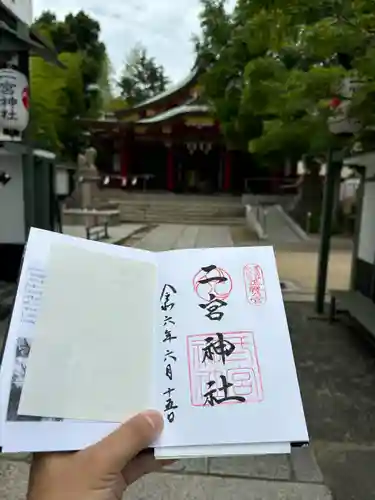 二宮神社
二宮神社
令和六年六月十五日